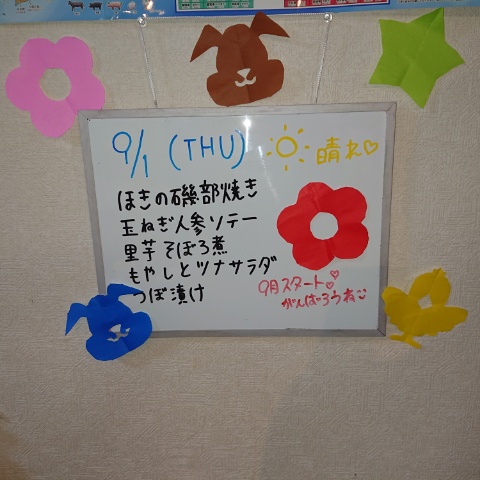 9/1 (THU) 晴れ♡
ほきの磯部焼き
玉ねぎ人参ソテー
里芋そぼろ煮
もやしとツナサラダ
つぼ漬け
9月スタート♡
がんばろうね☺